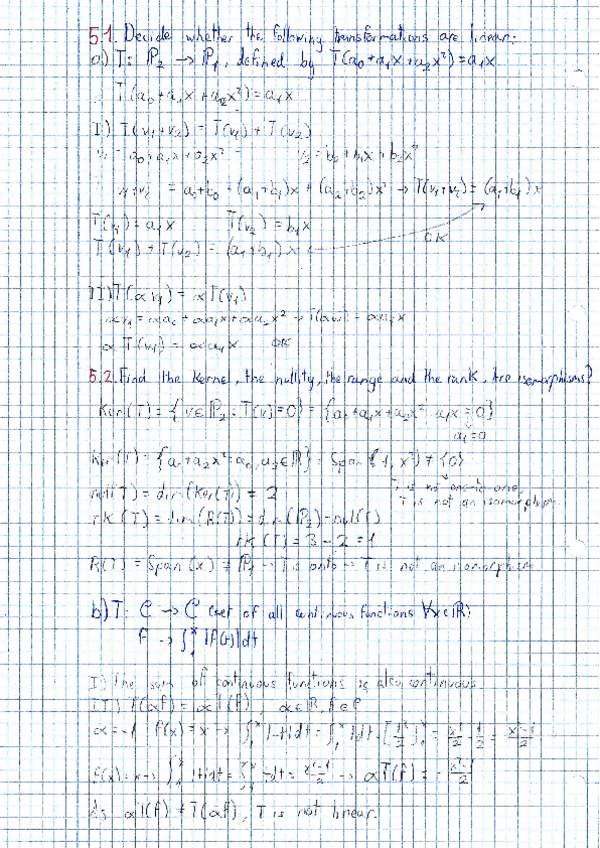 5.1. Decide whether the following transformations are linear:
a) T: P₂ → P₁, defined by T(a₀+a₁x+a₂x²)=a₁x
T(a₀+a₁x+a₂x²)=a₁x
I) T(v₁+v₂) = T(v₁)+T(v₂)
v₁=a₀+a₁x+a₂x² v₂=b₀+b₁x+b₂x²
v₁+v₂ = a₀+b₀+(a₁+b₁)x+(a₂+b₂)x² → T(v₁+v₂)=(a₁+b₁)x
T(v₁)=a₁x T(v₂)=b₁x
T(v₁)+T(v₂) = (a₁+b₁)x
OK
II) T(αv₁) = αT(v₁)
αv₁=αa₀+αa₁x+αa₂x² → T(αv₁)=αa₁x
αT(v₁)=αa₁x OK
5.2. Find the Kernel, the nullity, the range and the rank. Are isomorphisms?
Ker(T)={v∈P₂: T(v)=0}={a₀+a₁x+a₂x²: a₁x=0}
a₁=0
Ker(T)={a₀+a₂x²: a₀,a₂∈R}=Span{1,x²}≠{0}
T is not one-to-one,
T is not an isomorphism
null(T)=dim(Ker(T))=2
rk(T)=dim(R(T))=dim(P₂)-null(T)
rk(T)=3-2=1
R(T)=Span(x)≠P₁ → T is onto → T is not an isomorphism
b) T: C → C (set of all continuous functions ∀x∈R)
f → ∫₁ˣ|f(t)|dt
I) The sum of continuous functions is also continuous.
II) T(αf)=αT(f), α∈R, f∈C
α=-1 f(x)=x → ∫₁ˣ|-t|dt=∫₁ˣtdt=[t²/2]₁ˣ=x²/2-1/2=x²-1/2
f(x)=x → ∫₁ˣ|t|dt=∫₁ˣtdt=x²-1/2 → αT(f)=-x²-1/2
As αT(f)≠T(αf), T is not linear.